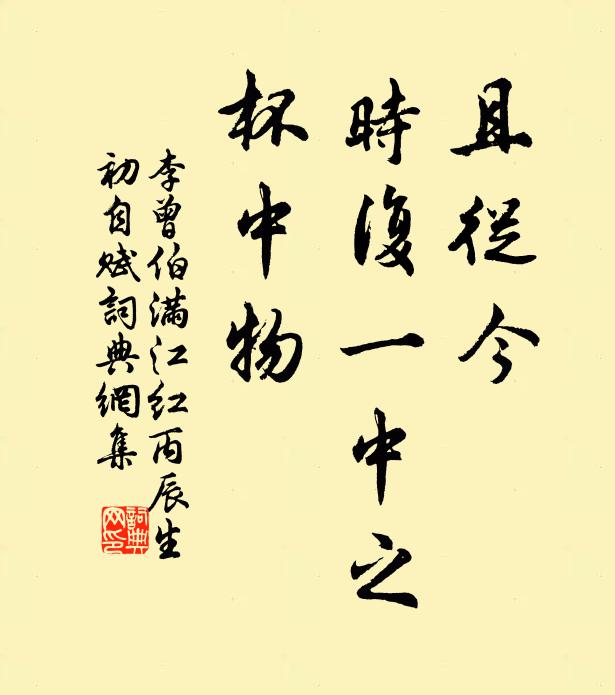 且從今
時復一中之
杯中物
李曾伯滿江紅丙辰生
初自賦詞典網集
詞典
网印